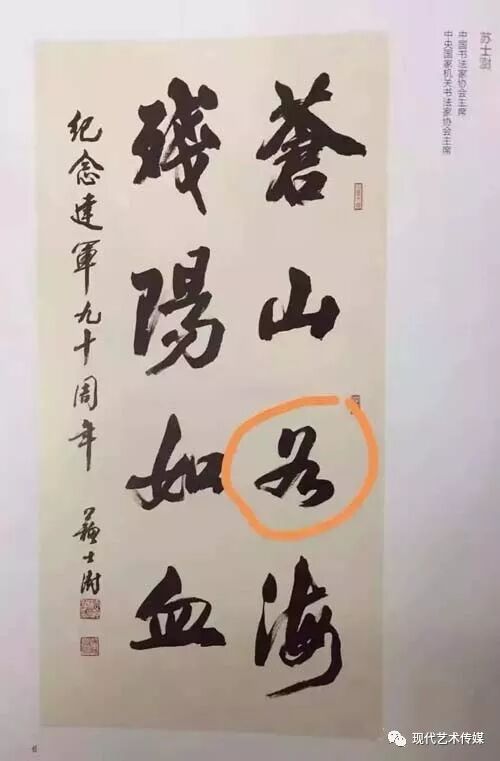 苏士澍
中国书法家协会主席
中央国家机关书法家协会主席
蒼山若海
殘陽如血
紀念建軍九十周年 蘇士澍
现代艺术传媒